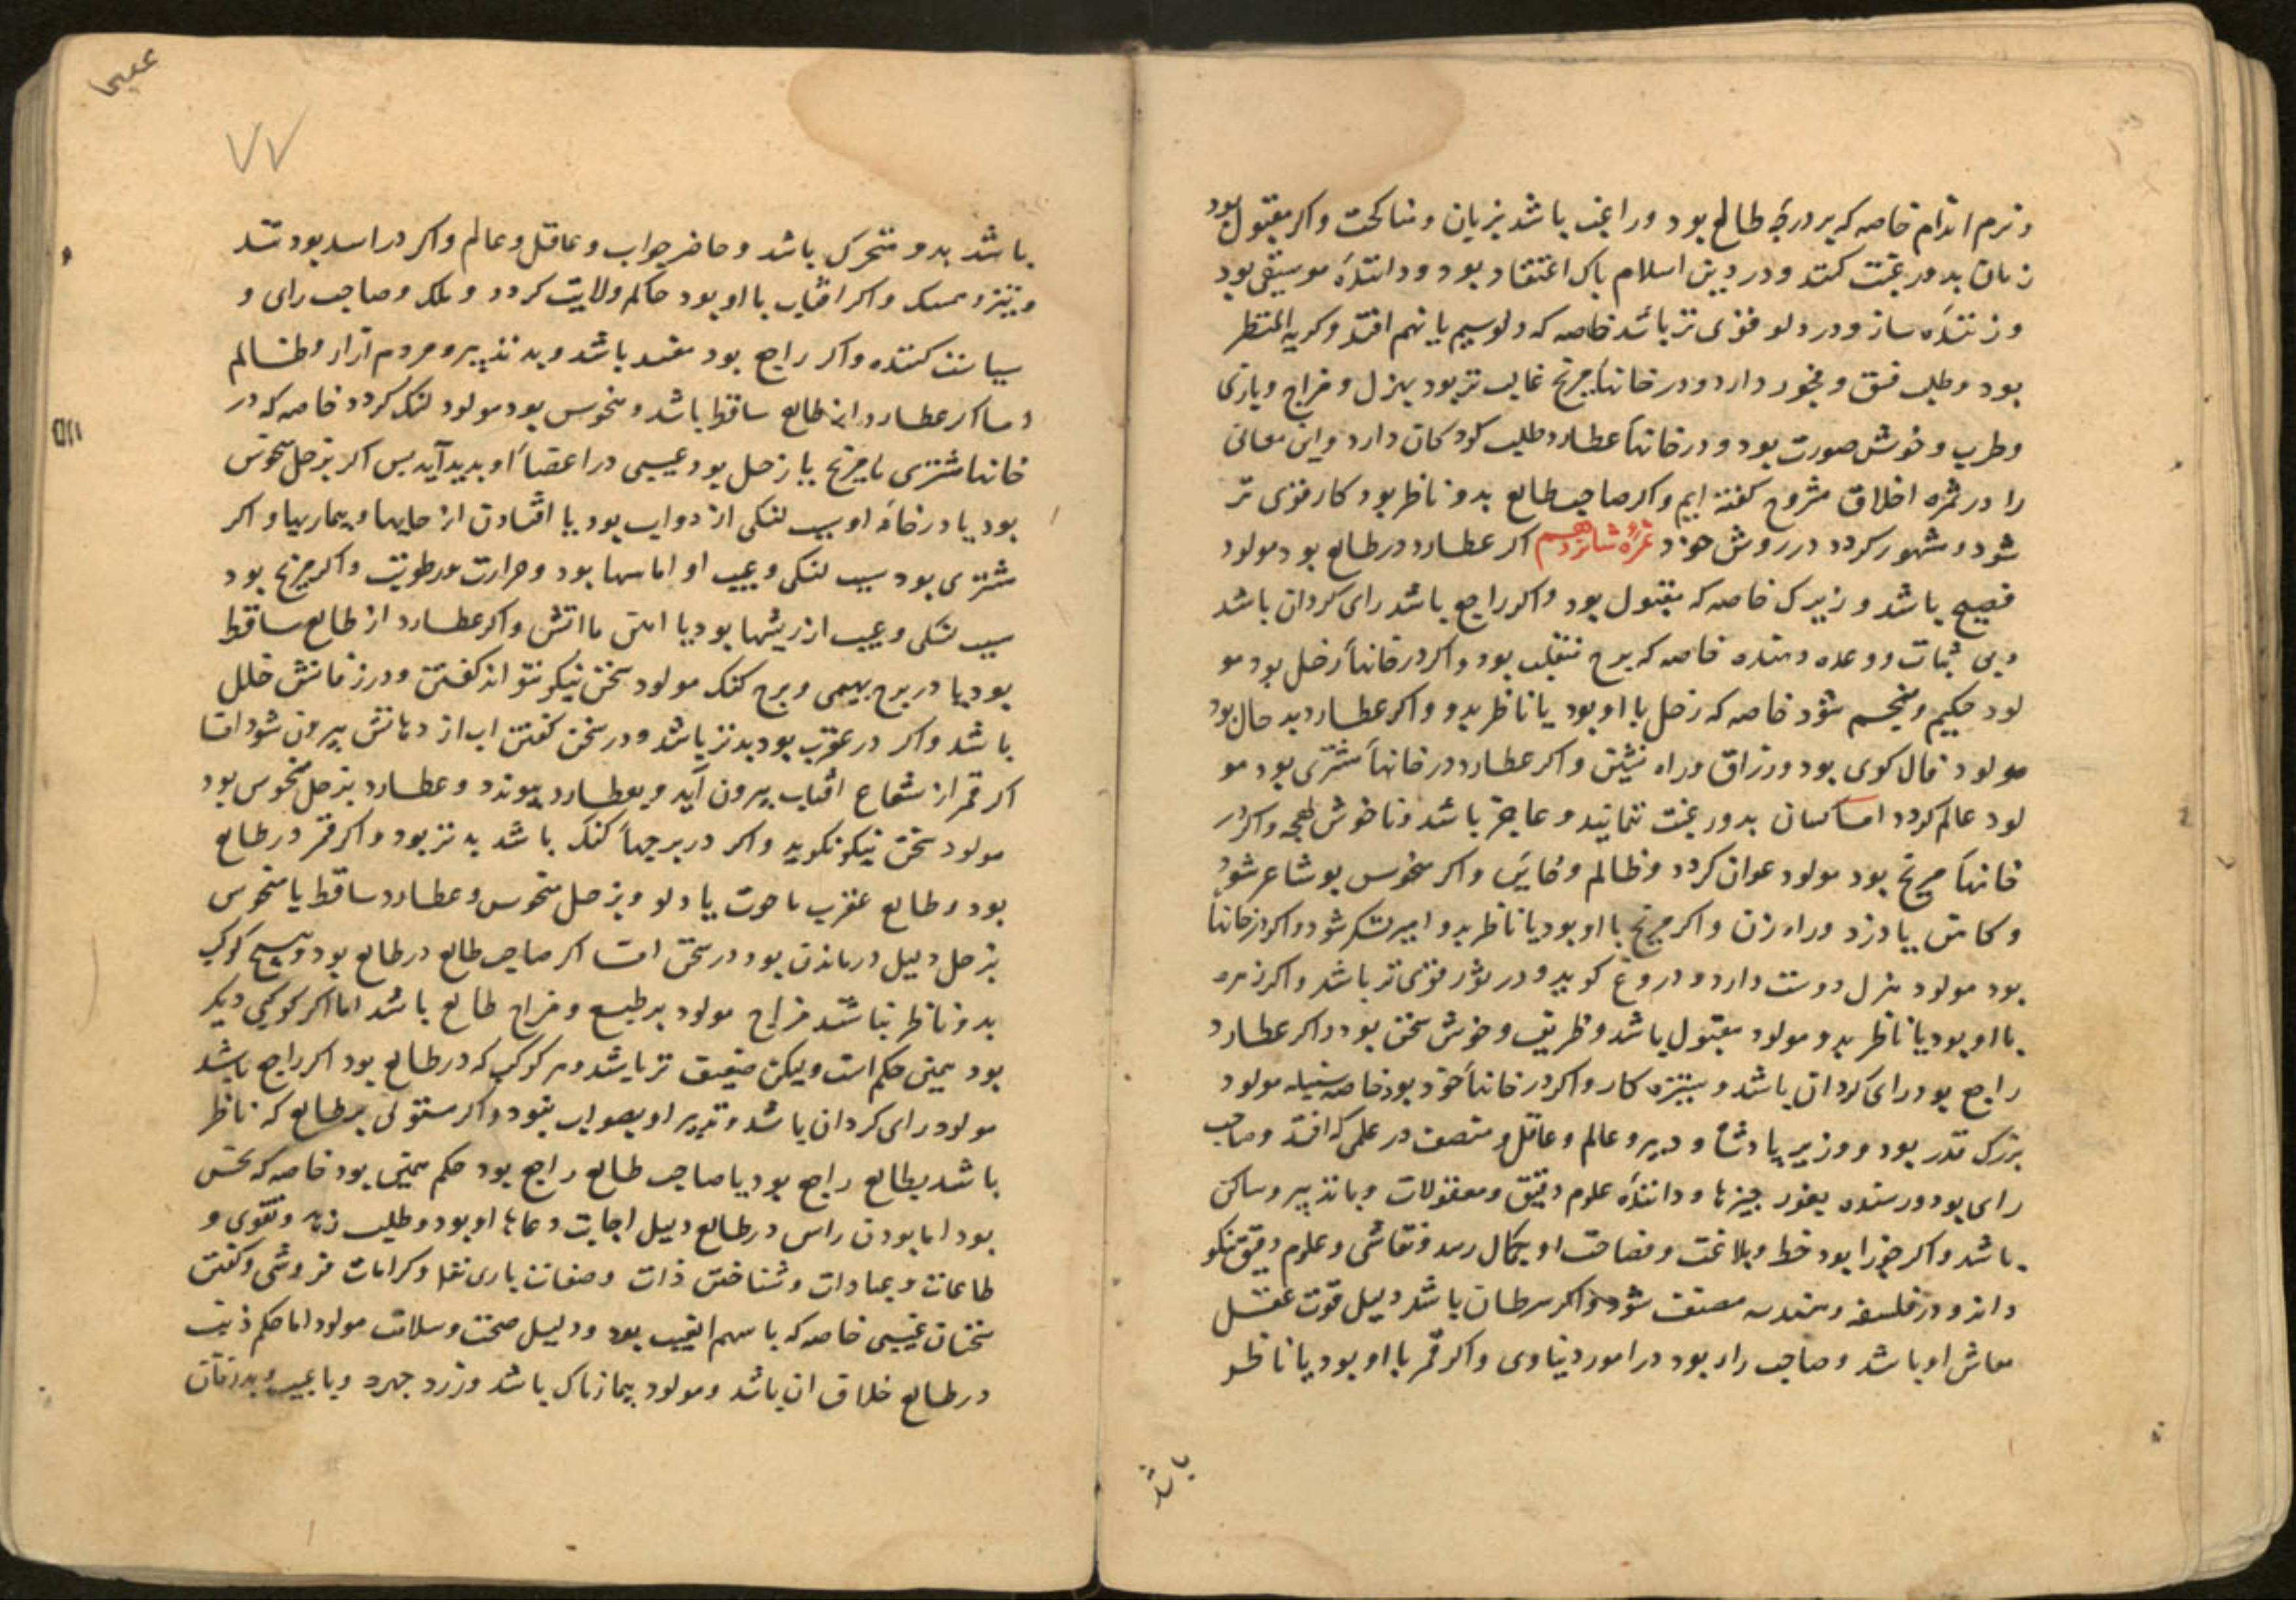 و نرم اندام خاصه که بر درجهٔ طالع بود و راغب باشد بزنان و مناکحت و اکر مقبول بود
زنان بدو رغبت کنند و در دین اسلام پاک اعتقاد بود و دانندهٔ موسیقی بود
و زنندهٔ ساز و در دلو قوی تر باشد خاصه که دلو سیم یا نهم افتد و کریه المنظر
بود و طلب فسق و فجور دارد و در خانهاء مریخ غالب تر بود بهزل و مزاح و بازی
و طرب و خوش صورت بود و در خانهاء عطارد طلب کودکان دارد و این معانی
را در ثمره اخلاق مشروح کفته ایم و اکر صاحب طالع بدو ناظر بود کار قوی تر
شود و مشهور کردد در روش خود ثمرهٔ شانزدهم اکر عطارد در طالع بود مولود
فصیح باشد و زیرک خاصه که مقبول بود و اکر راجع باشد رای کردان باشد
و بی ثبات و وعده دهنده خاصه که برج منقلب بود و اکر در خانهاء زحل بود مو
لود حکیم و منجم شود خاصه که زحل با او بود یا ناظر بدو و اکر عطارد بد حال بود
مولود فال کوی بود و رزاق و راه نشین و اکر عطارد در خانهاء مشتری بود مو
لود عالم کردد اما کسان بدو رغبت ننمایند و عاجز باشد و ناخوش لهجه و اکر در
خانهاء مریخ بود مولود عوان کردد و ظالم و خاین و اکر منحوس بو شاعر شود
و کاهن یا دزد و راه زن و اکر مریخ با او بود یا ناظر بدو امیر لشکر شود و اکر در خانهاء
بود مولود هزل دوست دارد و دروغ کوید و در ثور قوی تر باشد و اکر زهره
با او بود یا ناظر بدو مولود مقبول باشد و ظریف و خوش سخن بود و اکر عطارد
راجع بود رای کردان باشد و ستیزه کار و اکر در خانهاء خود بود خاصه سنبله مولود
بزرک قدر بود و وزیر پادشاه و دبیر و عالم و عاقل و منصف در علمی که افتد و صاحب
رای بود و رسنده بغور چیزها و دانندهٔ علوم دقیق و معقولات و با تدبیر و ساکن
باشد و اکر جوزا بود خط و بلاغت و فصاحت او بکمال رسد و نقاشی و علوم دقیق نیکو
داند و در فلسفه و هندسه مصنف شود و اکر سرطان باشد دلیل قوت عقل
معاش او باشد و صاحب راه بود در امور دنیاوی و اکر قمر با او بود یا ناظر
باشد
عیسی
۷۷
باشد بدو متحرک باشد و حاضر جواب و عاقل و عالم و اکر در اسد بود تند
و تیز و ممسک و اکر افتاب با او بود حاکم ولایت کردد و ملک و صاحب رای و
سیاست کننده و اکر راجع بود مفسد باشد و بد تدبیر و مردم آزار و ظالم
و ما اکر عطارد از طالع ساقط باشد و منحوس بود مولود لنک کردد خاصه که در
خانها مشتری یا مریخ یا زحل بود عیبی در اعضاء او بدید آید بس اکر بزحل منحوس
بود یا در خانهٔ او سبب لنکی از دواب بود یا افتادن از جایها و بیماریها و اکر
مشتری بود سبب لنکی و عیب او اماسها بود و حرارت و رطوبت و اکر مریخ بود
سبب لنکی و عیب از ریشها بود یا اهن یا اتش و اکر عطارد از طالع ساقط
بود یا در برج بهیمی و برج کنک مولود سخن نیکو نتواند کفتن و در زفانش خلل
باشد و اکر در عقرب بود بدتر باشد و در سخن کفتن اب از دهانش بیرون شود اما
اکر قمر از شعاع افتاب بیرون آید و بعطارد پیوندد و عطارد بزحل منحوس بود
مولود سخن نیکو نکوید و اکر در برجهاء کنک باشد بد تر بود و اکر قمر در طالع
بود و طالع عقرب یا حوت یا دلو و بزحل منحوس و عطارد ساقط یا منحوس
بزحل دلیل درماندن بود در سخن اما اکر صاحب طالع در طالع بود و هیچ کوکب
بدو ناظر نباشد مزاج مولود بر طبع و مزاج طالع باشد اما اکر کوکبی دیکر
بود همین حکم است ولیکن ضعیف تر باشد و هر کوکب که در طالع بود اکر راجع باشد
مولود رای کردان باشد و تدبیر او بصواب نبود و اکر مستولی بر طالع که ناظر
باشد بطالع راجع بود یا صاحب طالع راجع بود حکم همین بود خاصه که نحس
بود اما بودن راس در طالع دلیل اجابت دعاها او بود و طلب زهد و تقوی و
طاعات و عبادات و شناختن ذات و صفات باری تعا و کرامات فروشی و کفتن
سخنان غیبی خاصه که با سهم الغیب بود و دلیل صحت و سلامت مولود اما حکم ذنب
در طالع خلاف ان باشد و مولود بیمارناک باشد و زرد چهره و با عیب و بدزفان